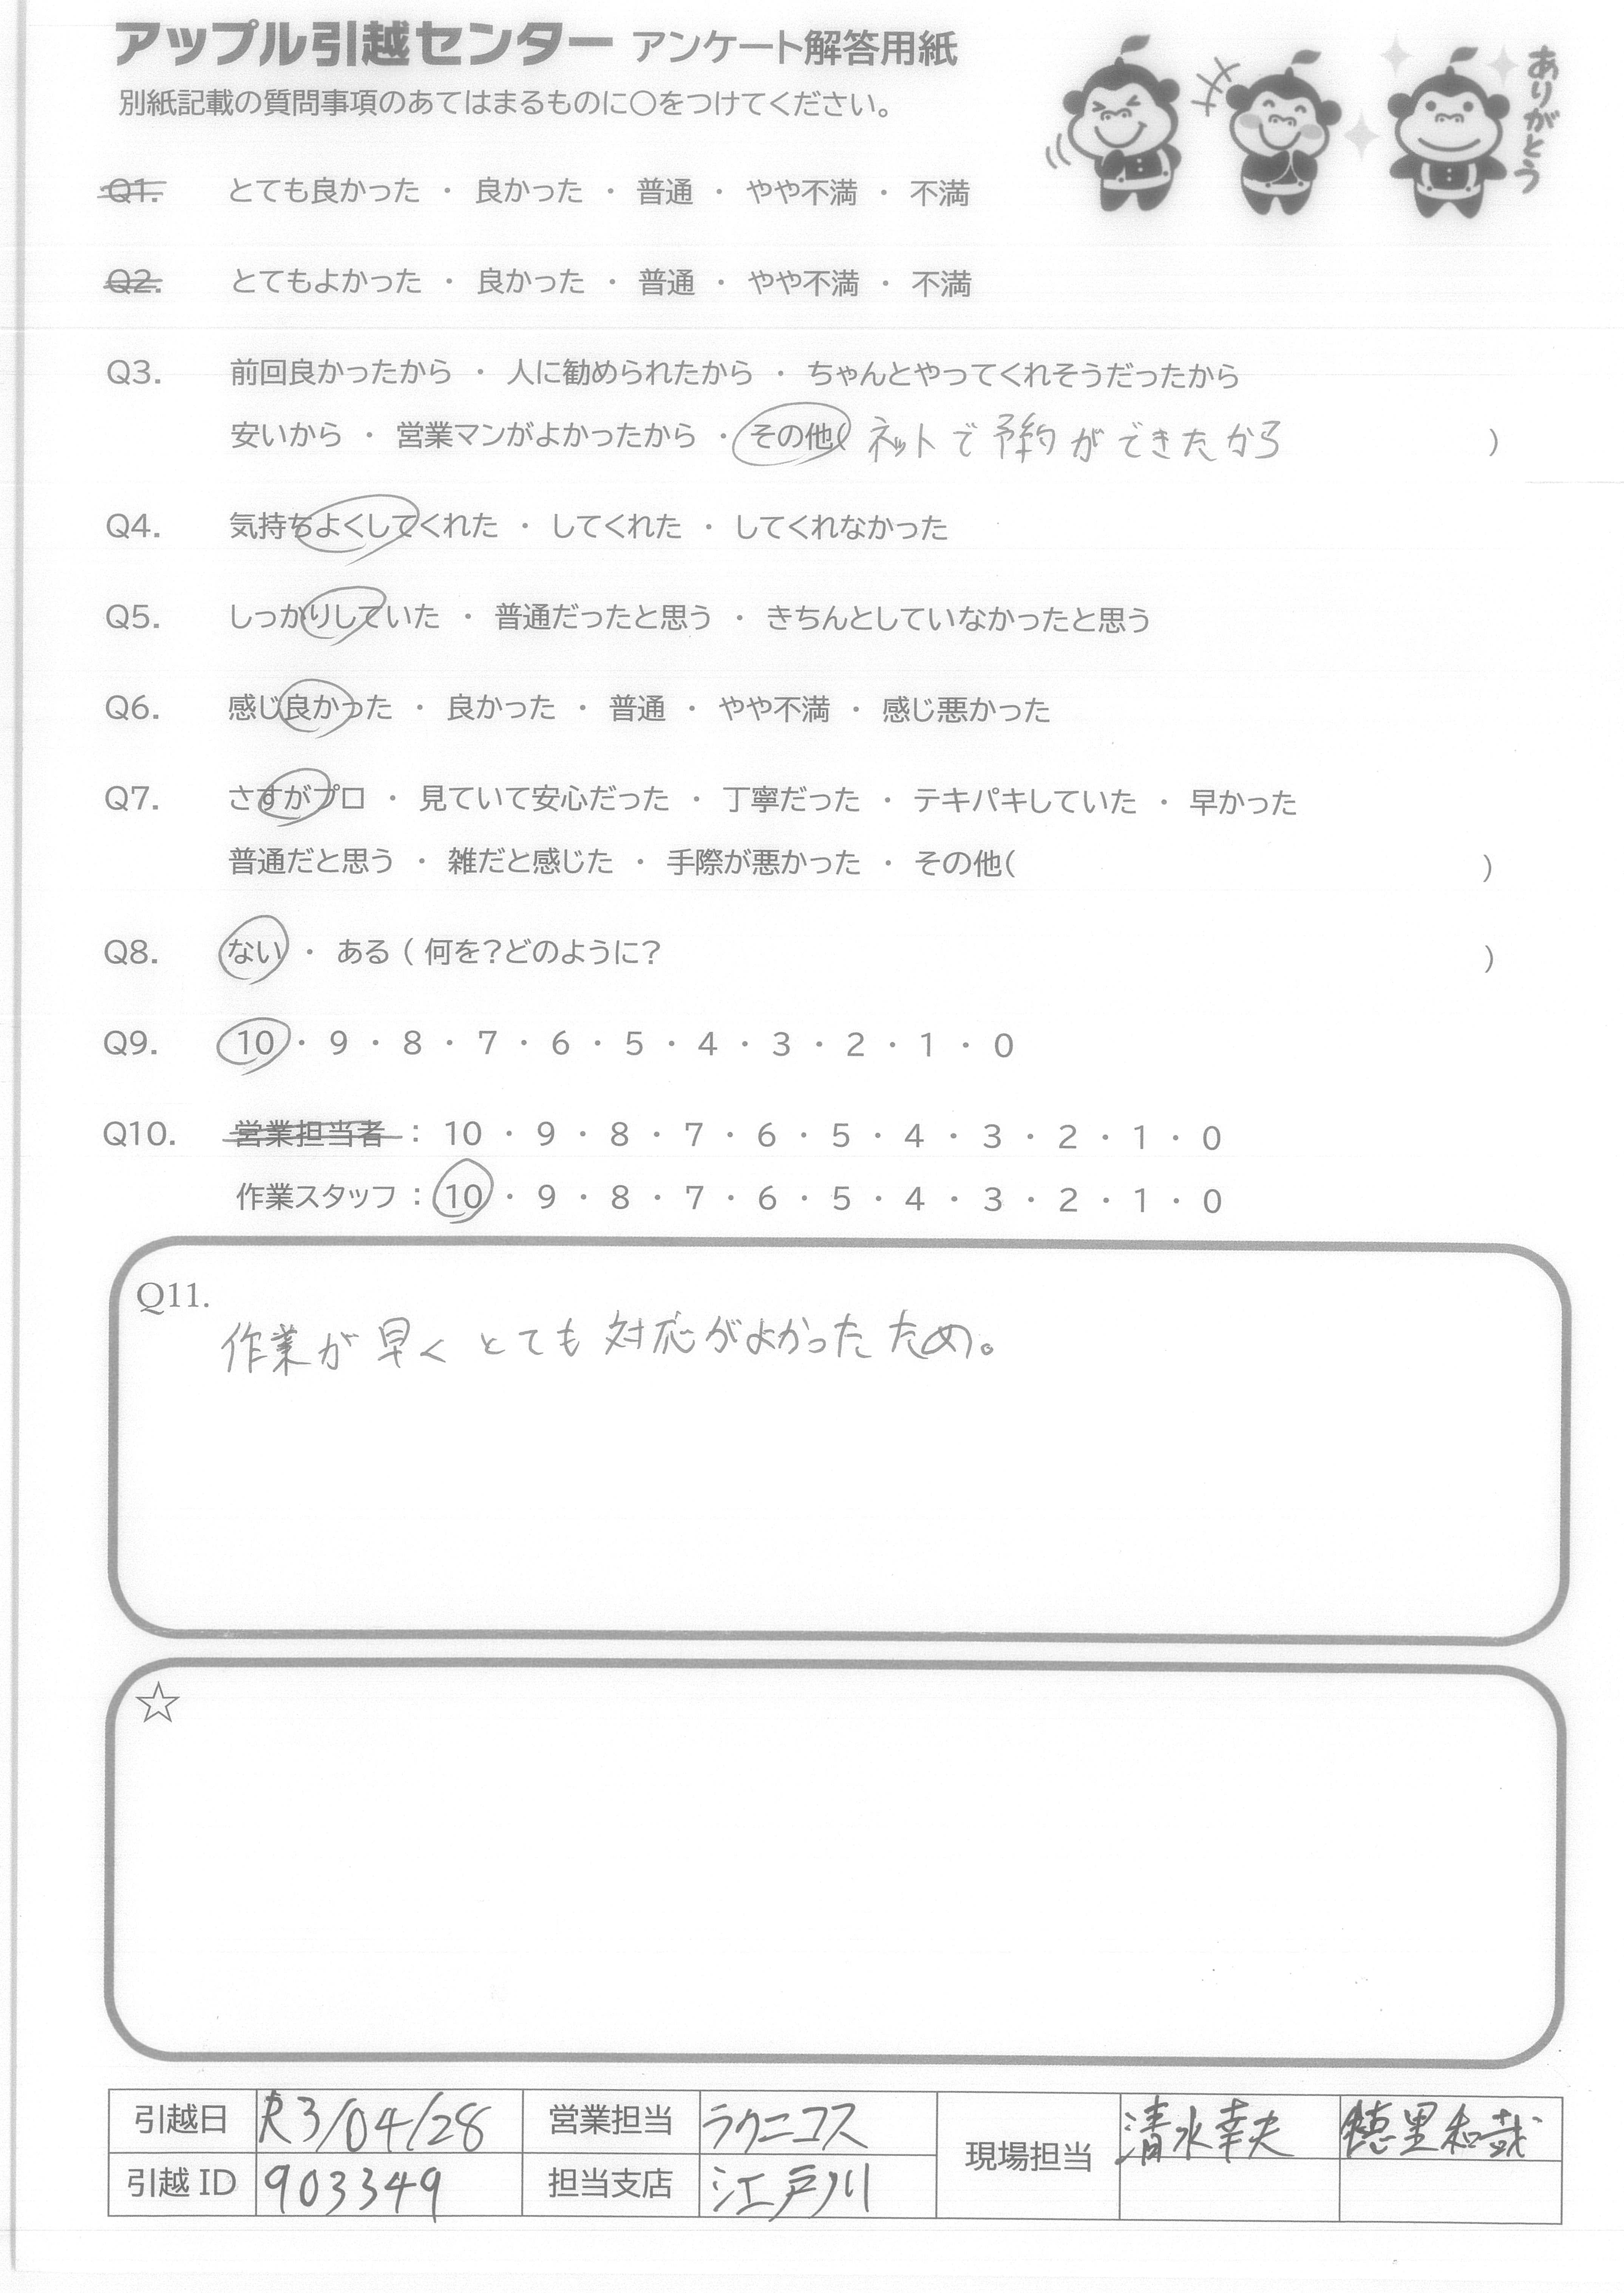 アップル引越センター アンケート解答用紙
ありがとう
別紙記載の質問事項のあてはまるものに〇をつけてください。
Q1. とても良かった ・ 良かった ・ 普通 ・ やや不満 ・ 不満
Q2. とてもよかった ・ 良かった ・ 普通 ・ やや不満 ・ 不満
Q3. 前回良かったから ・ 人に勧められたから ・ ちゃんとやってくれそうだったから
安いから ・ 営業マンがよかったから ・ その他( ネットで予約ができたから )
Q4. 気持ちよくしてくれた ・ してくれた ・ してくれなかった
Q5. しっかりしていた ・ 普通だったと思う ・ きちんとしていなかったと思う
Q6. 感じ良かった ・ 良かった ・ 普通 ・ やや不満 ・ 感じ悪かった
Q7. さすがプロ ・ 見ていて安心だった ・ 丁寧だった ・ テキパキしていた ・ 早かった
普通だと思う ・ 雑だと感じた ・ 手際が悪かった ・ その他( )
Q8. ない ・ ある ( 何を?どのように? )
Q9. 10 ・ 9 ・ 8 ・ 7 ・ 6 ・ 5 ・ 4 ・ 3 ・ 2 ・ 1 ・ 0
Q10. 営業担当者 : 10 ・ 9 ・ 8 ・ 7 ・ 6 ・ 5 ・ 4 ・ 3 ・ 2 ・ 1 ・ 0
作業スタッフ : 10 ・ 9 ・ 8 ・ 7 ・ 6 ・ 5 ・ 4 ・ 3 ・ 2 ・ 1 ・ 0
Q11.
作業が早くとても対応がよかったため。
☆
引越日 R3/04/28 営業担当 ラクニコス 現場担当 清水幸夫 穂里和哉
引越ID 903349 担当支店 江戸川